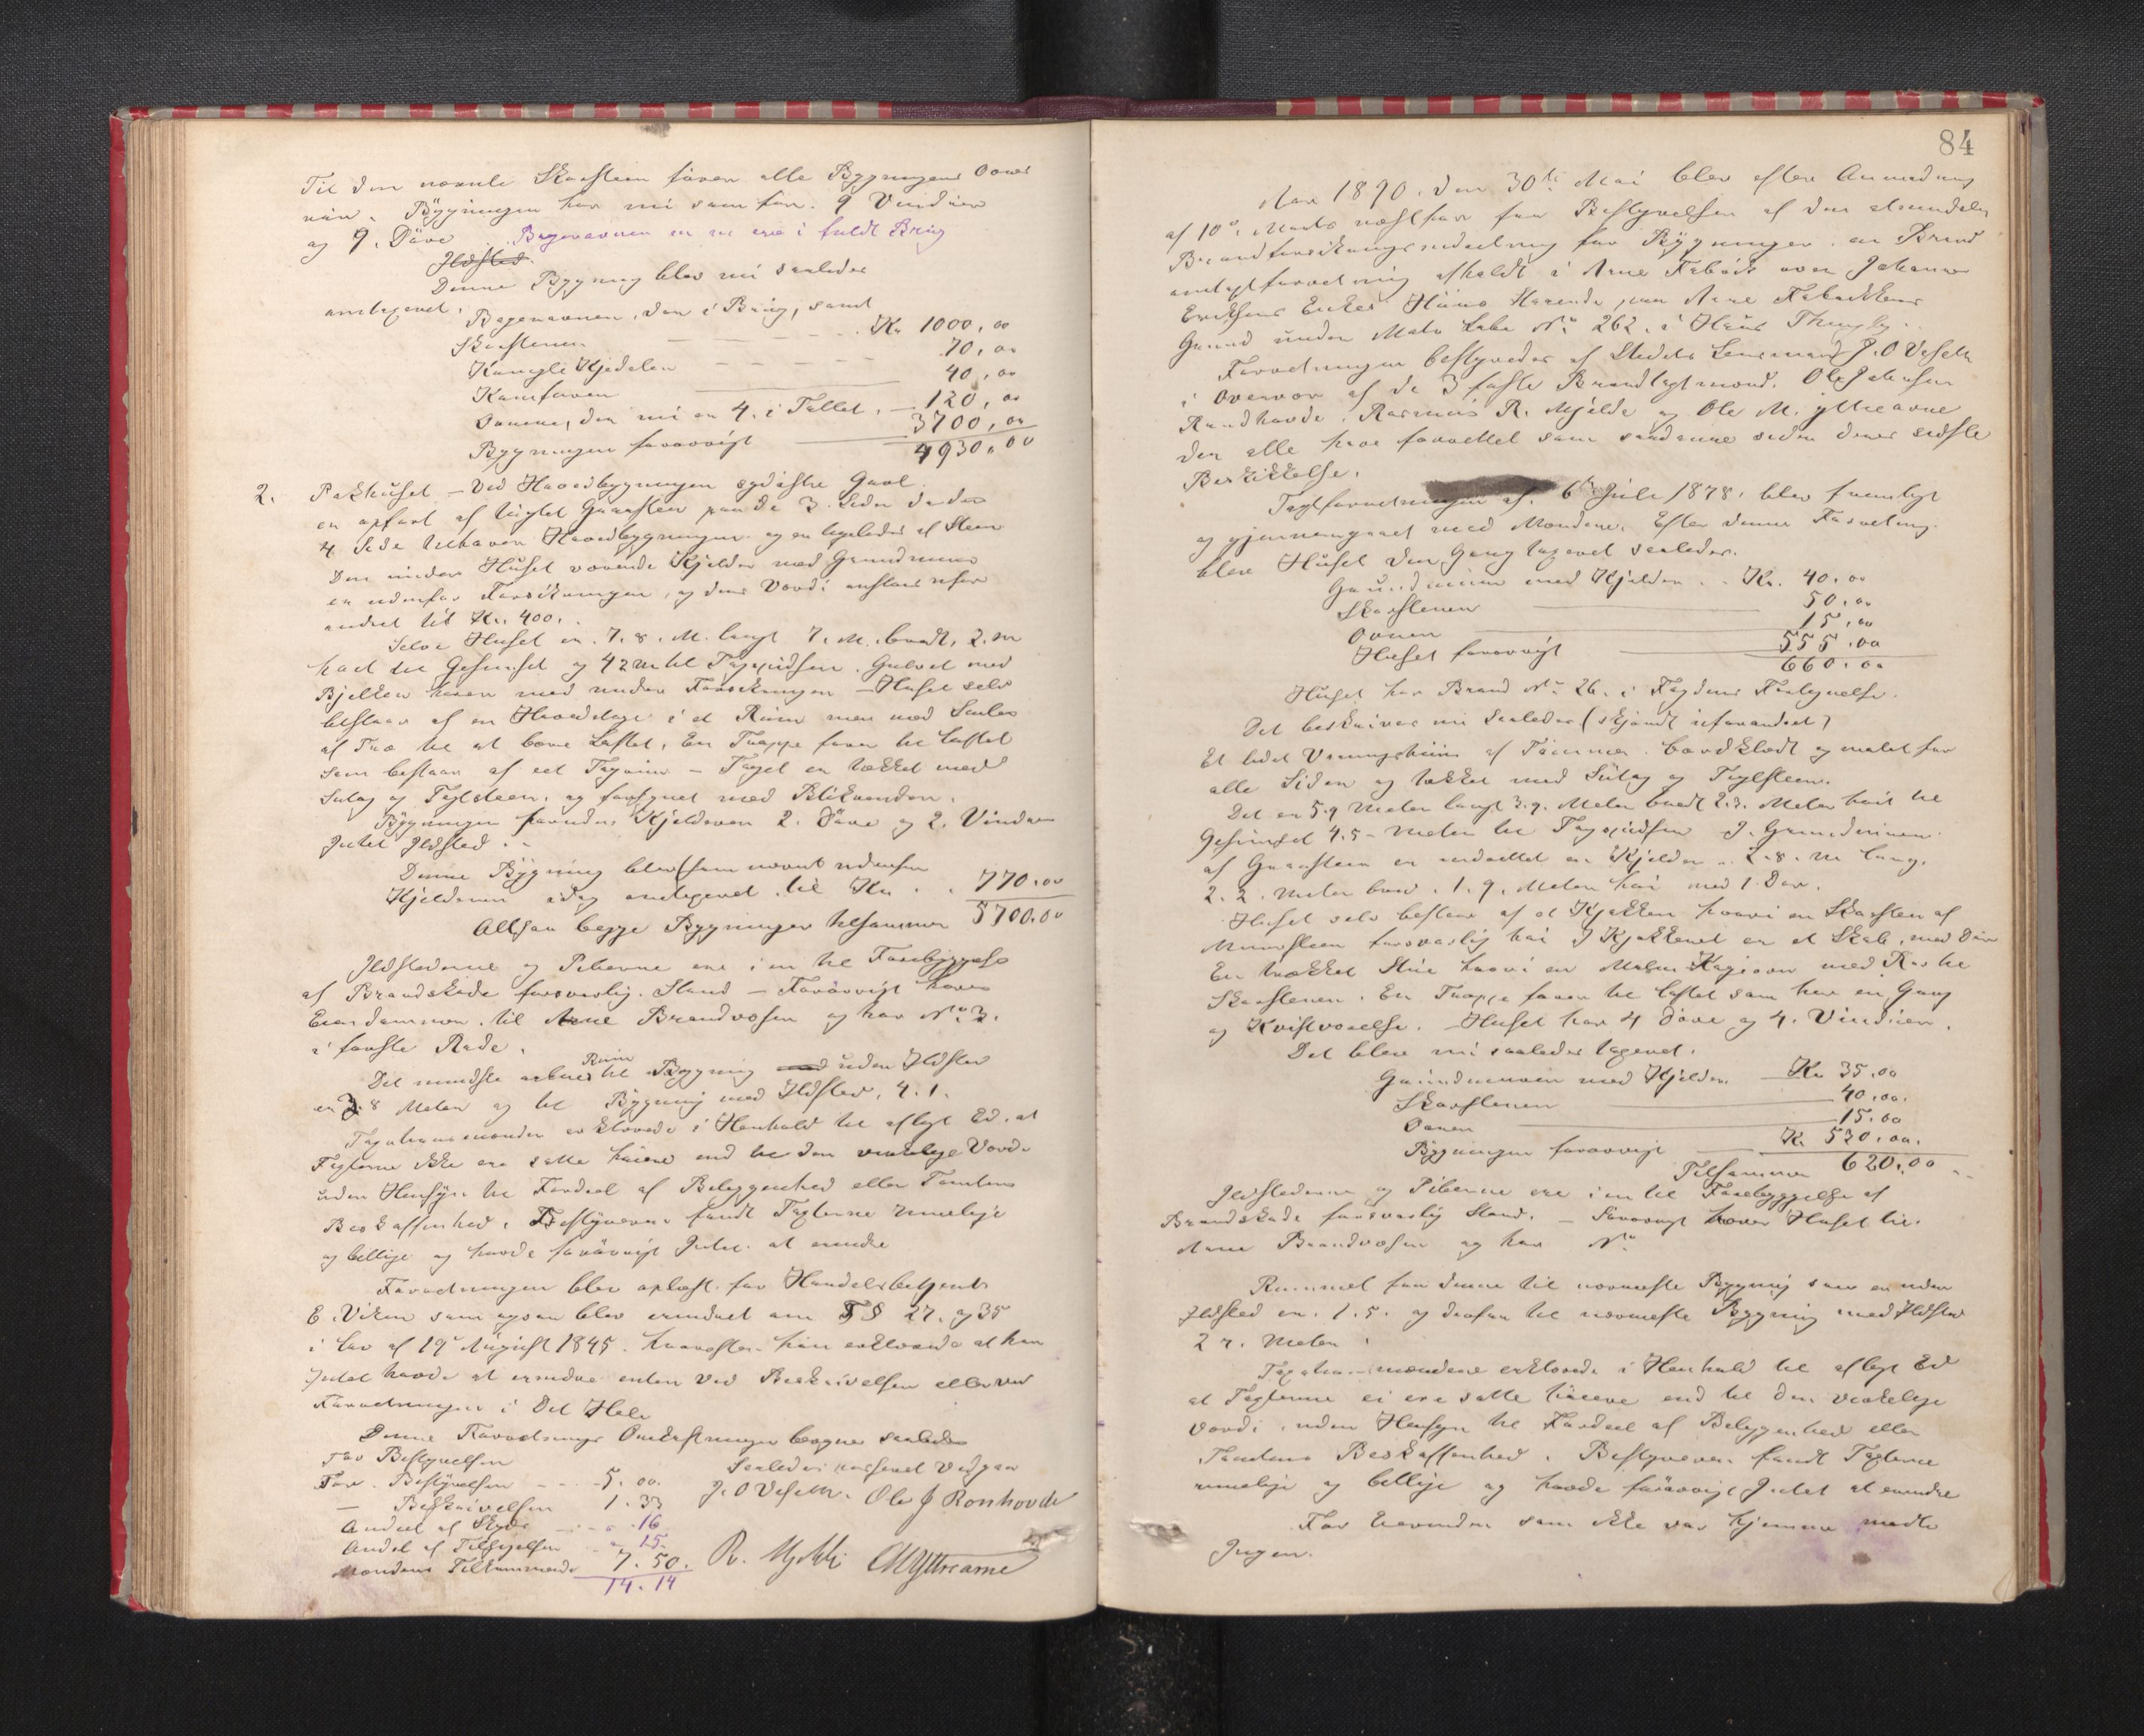 Til den nævnte Skorsteen fører alle Bygningens Ovnes
rør. Bygningen har nu som før 9 Vinduer
og 9. Døre. Bageravnen er nu ene i fuldt Brug
Ildsted
Denne Bygning blev nu saaledes
omtaxeret:
Bageravnen, den i Brug, samt
Skorstenen — — — Kr 1000,00
Kangle Kjedelen — — 70,00
Komfuren 40,00
Ovnene, der nu er 4. i Tallet, — 120,00
Bygningen forøvrigt 3700,00
4930.00
2. Pakhuset – Ved Hovedbygningens sydøstre Gavl.
er opført af hugget Graasteen paa de 3 Sider da den
4 Side tilhører Hovedbygningen og er ligeledes af Steen
Den under Huset værende Kjelder med Grundmuur
er udenfor Forsikringen, og dens Værdi ansloes ufor
andret til Kr. 400.
Selve Huset er 7.8. M. langt 7. M. bredt, 2. m
høit til Gesimset og 42 m til Tagspidsen. Gulvet med
Bjelker hører med under Forsikringen – Huset selv
bestaar af en Hovedetage i et Rum men med Stolper
af Træ til at bære Loftet, En Trappe fører til Loftet
som bestaar af eet Tagrum – Taget er tækket med
Sutag og Teglsteen, og forsynet med Blikrender.
Bygningen foruden Kjelderen 2. Døre og 2. Vinduer
Intet Ildsted.
Denne Bygning blev (som nævnt udenfor
Kjelderen idag omtaxeret til Kr. . . 770.00
Altsaa begge Bygninger tilsammen 5700.00
Ildstederne og Piberne ere i en til Forebyggelse
af Brandskade forsvarlig Stand – Forøvrigt hører
Eiendommen til Arne Brandvæsen og har No 3.
i første Rode.
Det mindste Rum til Bygning uden Ildsted
er 3.8 Meter og til Bygning med Ildsted, 4.1.
Taxationsmændene erklærede i Henhold til aflagt Ed, at
Taxterne ikke ere satte høiere end til den virkelige Værdi
uden Hensyn til Fordeel af Beliggenhed eller Tomtens
Beskaffenhed. Bestyreren fandt Taxterne rimelige
og billige og havde forøvrigt Intet at erindre
Forretningen blev oplæst for Handelsbetjent
E. Viken som ogsaa blev erindret om §§ 27. og 35
i Lov af 19 August 1845. hvorefter han erklærede at han
Intet havde at erindre enten ved Beskrivelsen eller ved
Forretningen i Det Hele
Denne Forretnings Omkostninger beregnes saaledes
For Bestyrelsen Saaledes passeret Vedgaar
For Bestyrelsen - - - 5.00. J. O Veseth. Ole J Ronhovde
— Beskrivelsen 1.33
Andeel af Skyds - - - 16
Andel af Tilsigelsen 15.
Mændenes Tilkommende 7.50. R. Mjelde OMYttrearne
14.14
84
Aar 1890. den 30te Mai blev efter Anmodning
af 10de Marts næstfør fra Bestyrelsen af den almindelige
Brandforsikringsindretning for Bygninger en Brand
omtaxtforretning afholdt i Arne Fabrik over Johannes
Eriksens Enkes Huus Havende, paa Arne Fabrikkens
Grund under Matr Løbe No 262. i Haus Thinglag.
Forretningen bestyredes af Stedets Lensmand J. O Veseth
i Overvær af de 3 faste Brandtaxtmænd. Ole Johnsen
Rundhovde, Rasmus R. Mjelde og Ole M. Yttrearne
der alle have forrettet som saadanne siden deres sidste
Beskikkelse.
Taxtforretningen af 6te Juli 1878, blev fremlagt
og gjennemgaaet med Mændene. Efter denne Forretning
blev Huset den Gang taxeret saaledes.
Grundmuren med Kjelder . . Kr. 40.00
Skorstenen 50.00
Ovnen 15.00
Huset forøvrigt 555.00
660.00
Huset har Brand No 26. i Fogdens Fortegnelse.
Det beskrives nu saaledes (skjøndt uforandret)
Et lidet Vaaningshuus af Tømmer bordklædt og malet paa
alle Sider og tækket med Sutag og Teglsteen.
Det er 5.9 Meter langt 3.9. Meter bredt 2.3. Meter høit til
Gesimset 4.5 – Meter til Tagspidsen. I Grundmuren
af Graasteen er indrettet en Kjelder 2.8. m lang.
2.2. Meter bred. 1.9. Meter høi med 1 Dør.
Huset selv bestaar af et Kjøkken hvori en Skorsten af
Muursteen forsvarlig høi I Kjøkkenet er et Skab, med Dør
En trækket Stue hvori en Malm Kogeovn med Rør til
Skorstenen. En Trappe fører til Loftet som har en Gang
og Kvistværelse. Huset har 4 Døre og 4. Vinduer.
Det blev nu saaledes taxeret.
Grundmuren med Kjelder Kr 35.00
Skorstenen 40.00.
Ovnen 15.00
Bygningen forøvrigt Kr 530.00.
Tilsammen 620.00
Ildstederne og Piberne ere i en til Forebyggelse af
Brandskade forsvarlig Stand. – Forøvrigt hører Huset til
Arne Brandvæsen og har No
Rummet fra denne til nærmeste Bygning som er uden
Ildsted er. 1.5. og derfra til nærmeste Bygning med Ildsted
2 r. Meter.
Taxationsmændene erklærede i Henhold til aflagt Ed
at Taxterne ei ere satte høiere end til den virkelige
Værdi, uden Hensyn til Fordeel af Beliggenhed eller
Tomtens Beskaffenhed. Bestyreren fandt Taxterne
rimelige og billige og havde forøvrigt Intet at erindre
For Eierinden som ikke var hjemme mødte
Ingen.